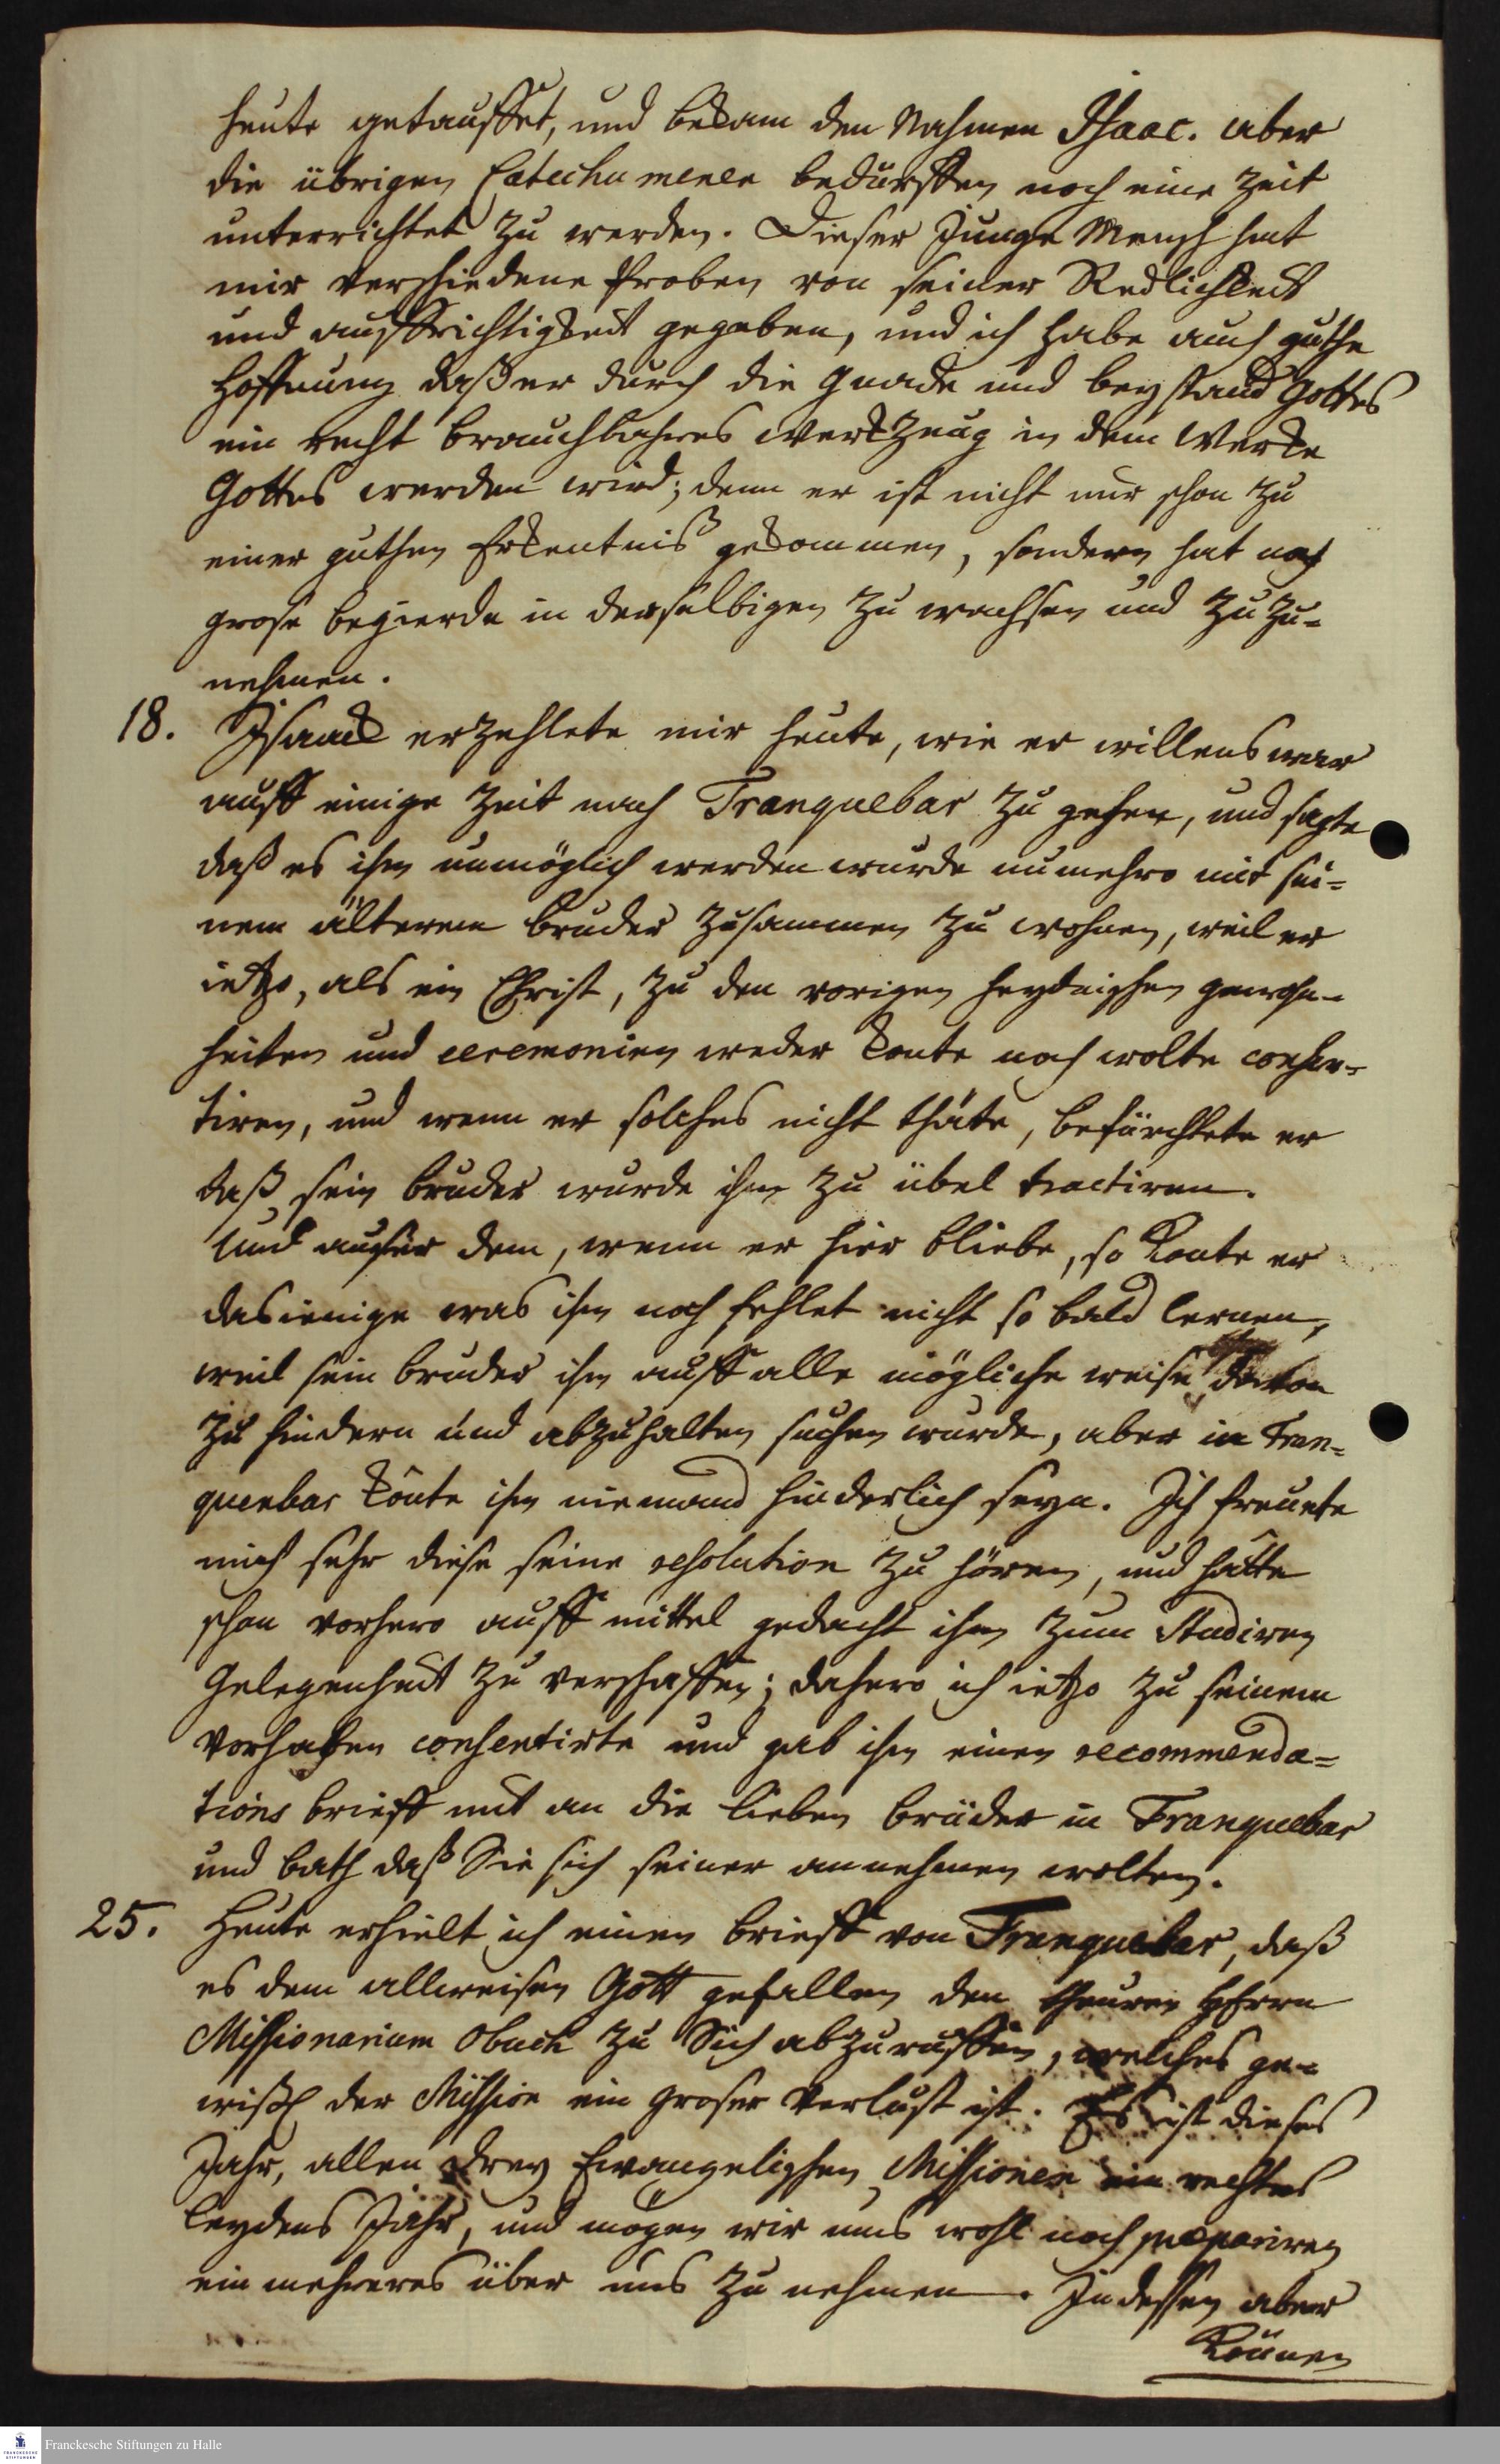 heute getauffet, und bekam den Nahmen Isaac. aber
die übrigen Catechumenen bedurfften noch eine Zeit
unterrichtet zu werden. Dieser Junge Mensch hat
mir verschiedene Proben von seiner Redlichkeit
und auffrichtigkeit gegeben, und ich habe auch guthe
Hoffnung daß er durch die Gnade und beystand Gottes
ein recht brauchbahres werkzeug in dem Werke
Gottes werden wird; denn er ist nicht nur schon zu
einer guthen Erkentniß gekommen, sondern hat noch
grose begierde in derselbigen zu wachsen und zuzu-
nehmen.
18. Isaack erzehlete mir heute, wie er willens war
auff einige Zeit nach Tranquebar zu gehen, und sagte
daß es ihm unmöglich werden wurde nu mehro mit sei-
nem älterem bruder zusammen zu wohnen, weil er
ietzo, als ein Christ, zu den vorigen heydnischen gewohn-
heiten und ceremonien weder konte noch wolte consen-
tiren, und wenn er solches nicht thäte, befürchtete er
daß sein bruder wurde ihm zu übel tractiren.
Und auser dem, wenn er hier bliebe, so konte er
dasienige was ihm noch fehlet nicht so bald lernen,
weil sein bruder ihm auff alle mögliche weise davon
zu hindern und abzuhalten suchen wurde, aber in Tran-
quenbar könte ihm niemand hinderlich seyn. Ich freuete
mich sehr diese seine resolution zu hören, und hatte
schon vorhero auff mittel gedacht ihm zum Studiren
Gelegenheit zu verschaffen; dahero ich ietzo zu seinem
Vorhaben consentirte und gab ihm einen recommenda-
tions brieff mit an die lieben brüder in Tranquebar
und bath daß Sie sich seiner annehmen wolten.
25. Heute erhielt ich einen brieff von Tranquebar, daß
es dem allweisen Gott gefallen den theuren HErrn
Missionarium Obuch zu Sich abzuruffen, welches ge-
wißl der Mission ein groser Verlust ist. Es ist dieses
Jahr, allen drey Evangelischen Missionen ein rechtes
leydens Jahr, und mögen wir uns wohl noch præpariren
ein mehreres über uns zu nehmen. Indessen aber
können
Franckesche Stiftungen zu Halle